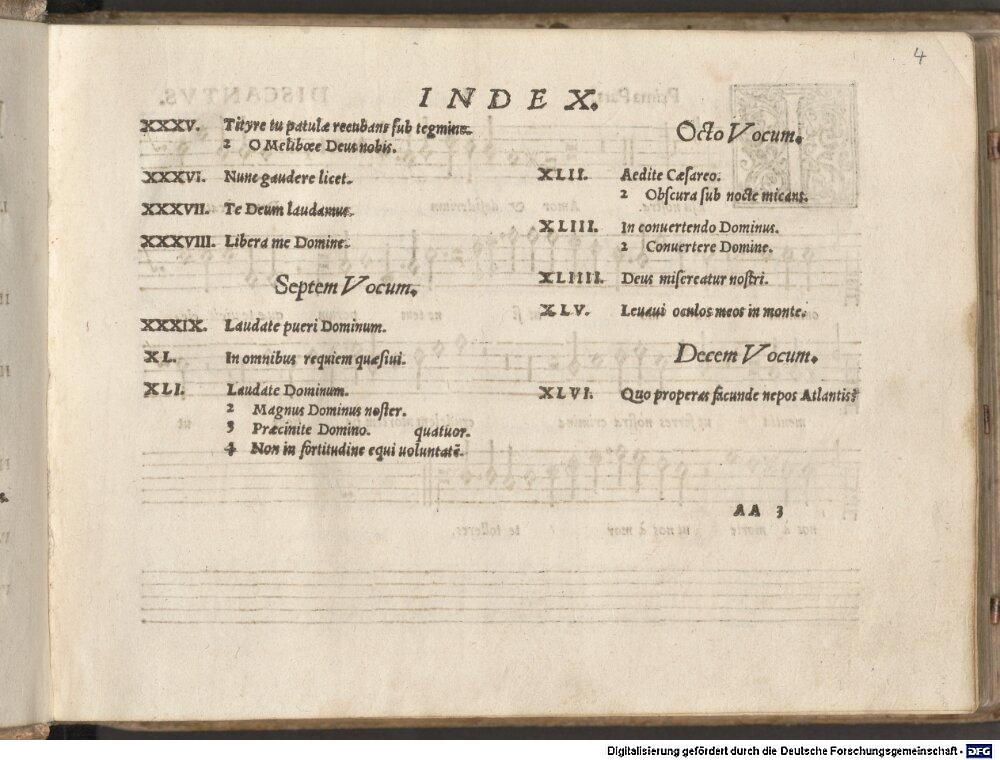 4
INDEX.
XXXV. Tityre tu patulæ recubans sub tegmine.
2 O Melibœe Deus nobis.
XXXVI. Nunc gaudere licet.
XXXVII. Te Deum laudamus.
XXXVIII. Libera me Domine.
Septem Vocum.
XXXIX. Laudate pueri Dominum.
XL. In omnibus requiem quæsiui.
XLI. Laudate Dominum.
2 Magnus Dominus noster.
3 Præcinite Domino. quatuor.
4 Non in fortitudine equi uoluntatē.
Octo Vocum.
XLII. Aedite Cæsareo.
2 Obscura sub nocte micans.
XLIII. In conuertendo Dominus.
2 Conuertere Domine.
XLIIII. Deus misereatur nostri.
XLV. Leuaui oculos meos in monte.
Decem Vocum.
XLVI. Quo properas facunde nepos Atlantis?
AA 3
Digitalisierung gefördert durch die Deutsche Forschungsgemeinschaft - DFG